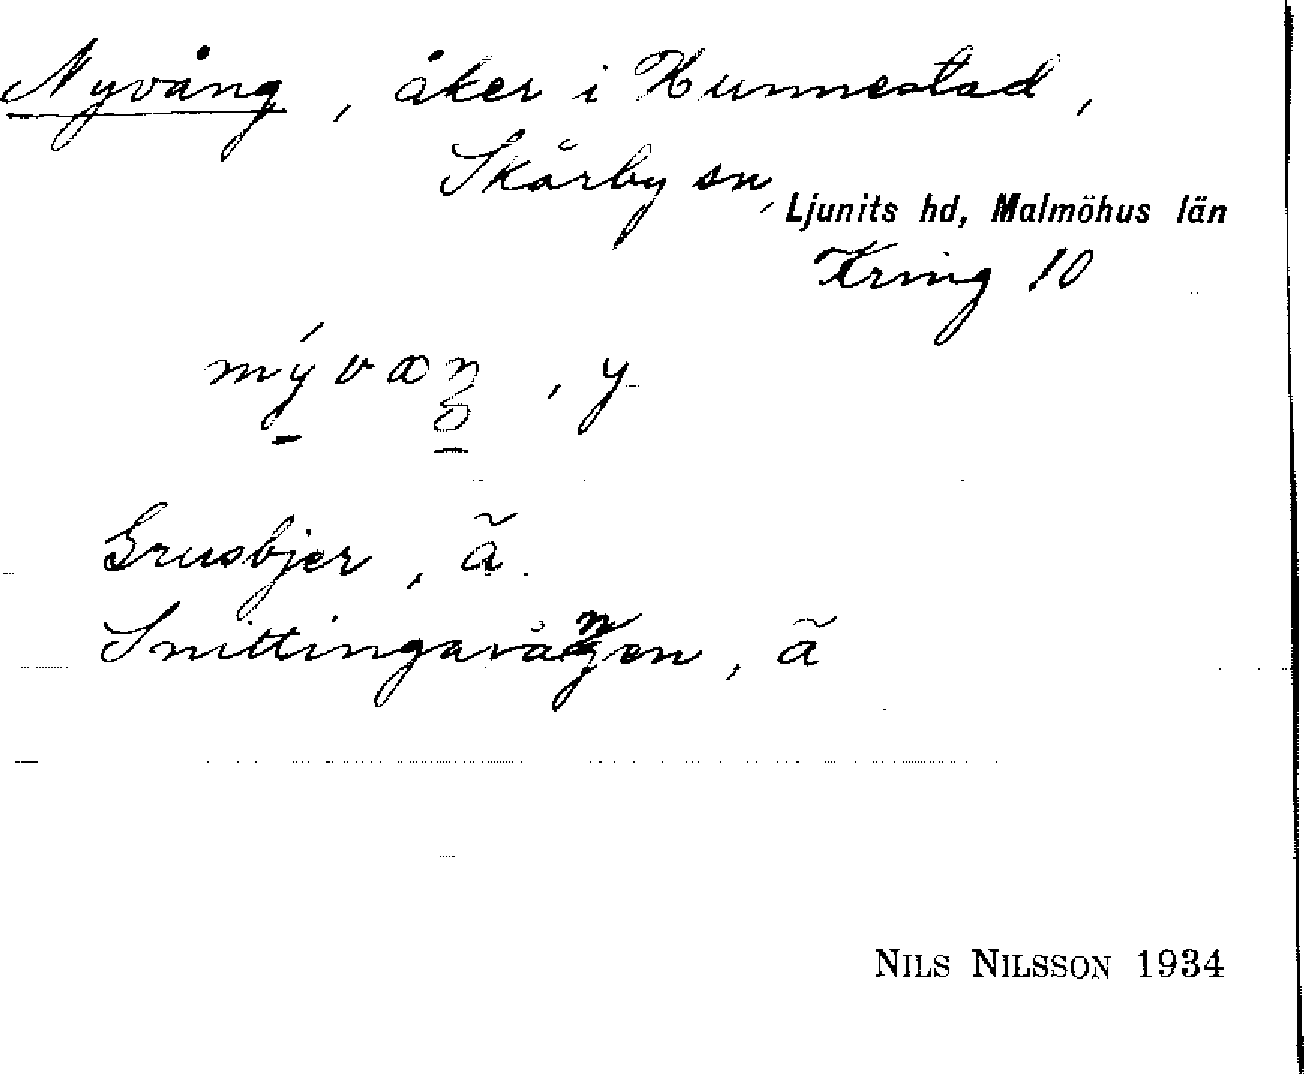 Nyvång, åker i Hunnestad,
Skårby sn,
Ljunits hd, Malmöhus län
Kring 10
, y
Grusbjer, ã.
Snittingavången, ã
NILS NILSSON 1934